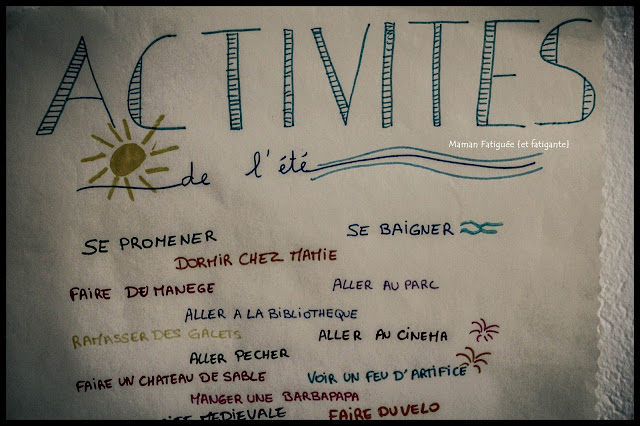 ACTIVITES
de l'été
Maman Fatiguée {et fatigante}
SE PROMENER
SE BAIGNER
DORMIR CHEZ MAMIE
FAIRE DU MANEGE
ALLER AU PARC
ALLER A LA BIBLIOTHEQUE
RAMASSER DES GALETS
ALLER AU CINEMA
ALLER PECHER
FAIRE UN CHATEAU DE SABLE
VOIR UN FEU D'ARTIFICE
MANGER UNE BARBAPAPA
MEDIEVALE
FAIRE DU VELO